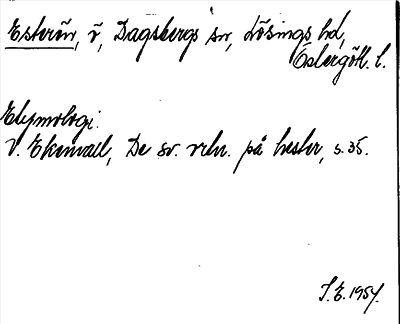 Esterön, ö, Dagsbergs sn, Lösings hd,
Östergötl. l.
Etymologi:
V. Ekenvall, De sv. ortn. på hester, s. 35.
I.E. 1957.